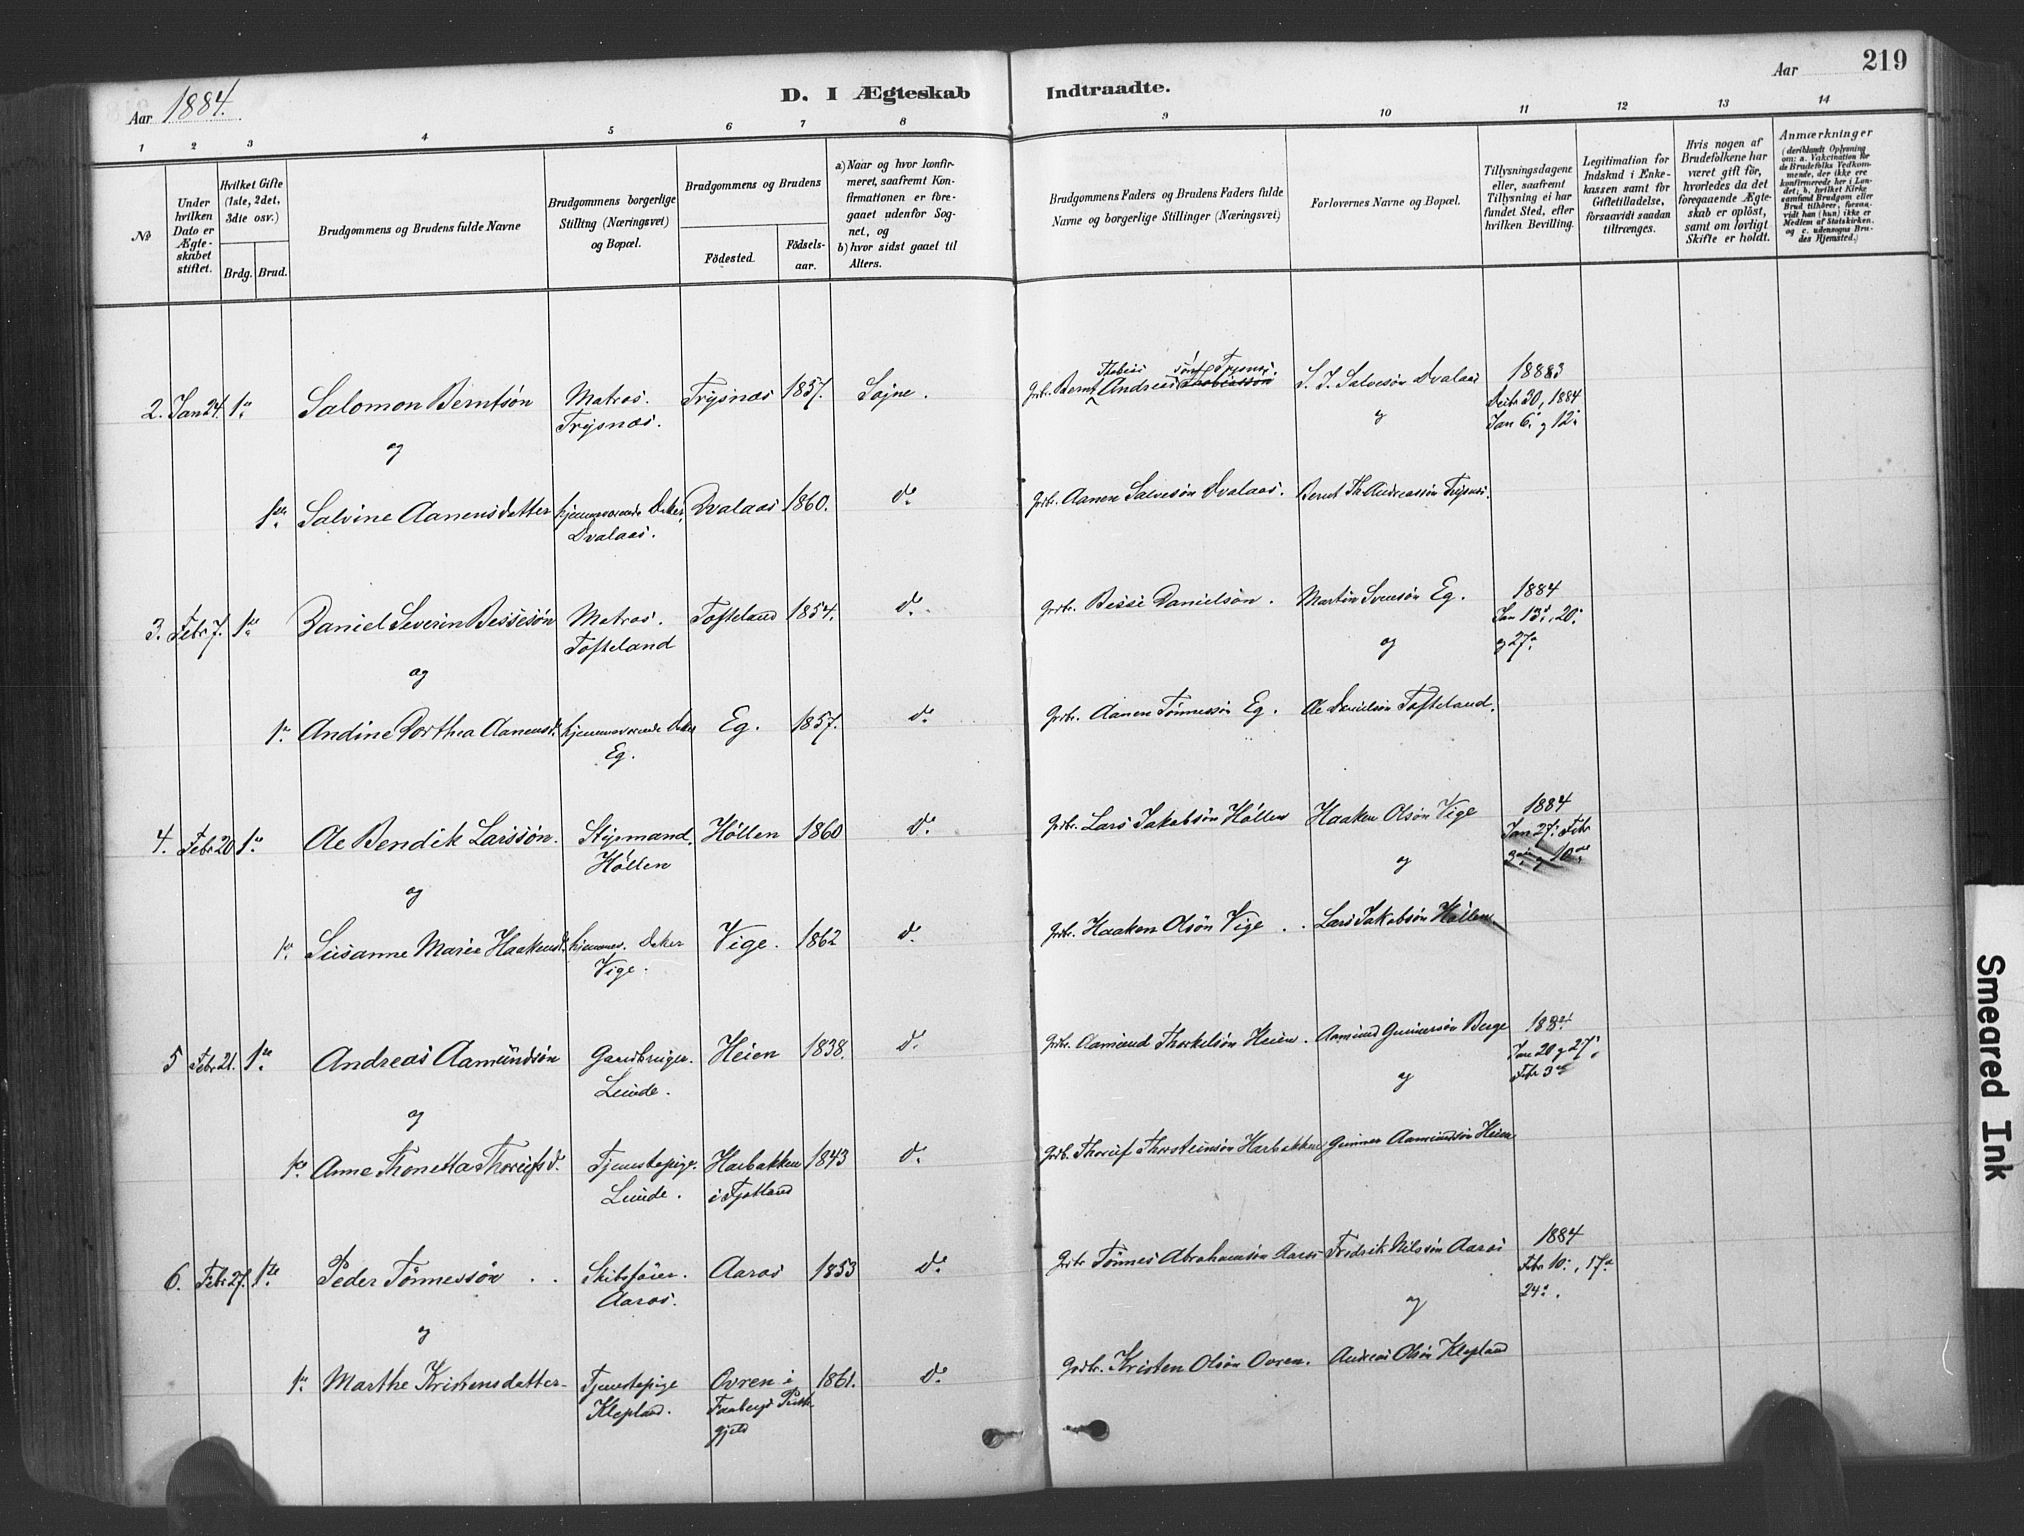 Aar 1884.
D. I Ægteskab Indtraadte.
Aar 219
1 2 3 4 5 6 7 8 9 10 11 12 13 14
No
Under hvilken Dato er Ægteskabet stiftet.
Hvilket Gifte (1ste, 2det, 3die osv.)
Brdg. Brud.
Brudgommens og Brudens fulde Navne
Brudgommens borgerlige Stilling (Næringsvei) og Bopæl.
Brudgommens og Brudens
Födested.
Födselsaar.
a) Naar og hvor konfirmeret, saafremt Konfirmationen er foregaaet udenfor Sognet, og
b) hvor sidst gaaet til Alters.
Brudgommens Faders og Brudens Faders fulde Navne og borgerlige Stillinger (Næringsvei)
Forlovernes Navne og Bopæl.
Tillysningsdagene eller, saafremt Tillysning ei har fundet Sted, efter hvilken Bevilling.
Legitimation for Indskud i Enkekassen samt for Giftetilladelse, forsaavidt saadan tiltrænges.
Hvis nogen af Brudefolkene har været gift för, hvorledes da det foregaaende Ægteskab er oplöst, samt om lovligt Skifte er holdt.
Anmærkninger (deriblandt Oplysning om: a. Vakcination for de Brudefolks Vedkommende, der ikke ere konfirmerede her i Landet; b. hvilket Kirkesamfund Brudgom eller Brud tilhörer, forsaavidt han (hun) ikke er Medlem af Statskirken. og c. udensogns Brudes Hjemsted.)
2. Jan 24. 1ste Salomon Berntsøn Matros. Trysnæs 1857. Søgne. Grbr. Bernt Tobias Andreassøn Trysnæs. S. J. Salvesøn Dvalaas 1883
Trysnæs. Decbr 30, 1884
og og Jan 6. og 12.
1ste Salvine Aanensdatter hjemmeværende Datter Dvalaas 1860. do. Grbr. Aanen Salvesøn Dvalaas. Bernt Th. Andreassøn Trysnæs.
Dvalaas.
3. Febr 7. 1ste Daniel Severin Bessesøn Matros. Tofteland 1854. do. Grbr. Besse Danielsøn. Martin Svensøn Eg. 1884
Tofteland Jan 13., 20.
og og og 27.
1ste Andine Dorthea Aanensd. hjemmeværende Datter Eg. 1857. do. Grbr. Aanen Tønnessøn Eg. Ole Danielsøn Tofteland.
Eg.
4. Febr 20 1ste Ole Bendik Larssøn. Styrmand, Høllen 1860 do. Grbr. Lars Jakobsøn Høllen Haaken Olsøn Vige 1884
Høllen Jan 27. Febr
og og 3die og 10de
1ste Susanne Marie Haakensd. hjemmev. Datter Vige. 1862 do. Grbr. Haaken Olsøn Vige. Lars Jakobsøn Høllen
Vige.
5 Febr 21. 1ste Andreas Aamundsøn Gaardbruger. Heien 1838. do. Grbr. Aamund Thorkelsøn Heien. Aamund Gunnersøn Berge 1884
Lunde. Jan 20 og 27.
og og Febr 3die
1ste Anne Thonetta Thoriefsd. Tjenestepige. Harbakken 1843 do. Grbr. Thorief Thorsteinsøn Harbakken Gunner Aamundsøn Heien
Lunde. i Fjotland
6. Febr 27. 1ste Peder Tønnessøn Skibsfører. Aaros 1853 do. Grbr Tønnes Abrahamsøn Aaros Fredrik Nilssøn Aaros 1884
Aaros. Febr 10., 17de
og og 24.
1ste Marthe Kristensdatter Tjenestepige Ovren i 1861. do. Grbr. Kristen Olsøn Ovren. Andreas Olsøn Klepland
Klepland. Faabergs Præstegjeld
Smeared Ink